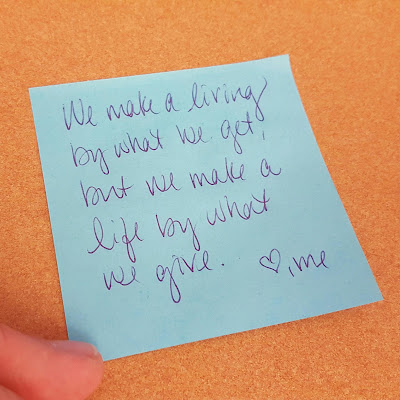 We make a living
by what we get,
but we make a
life by what
we give. ♡, me